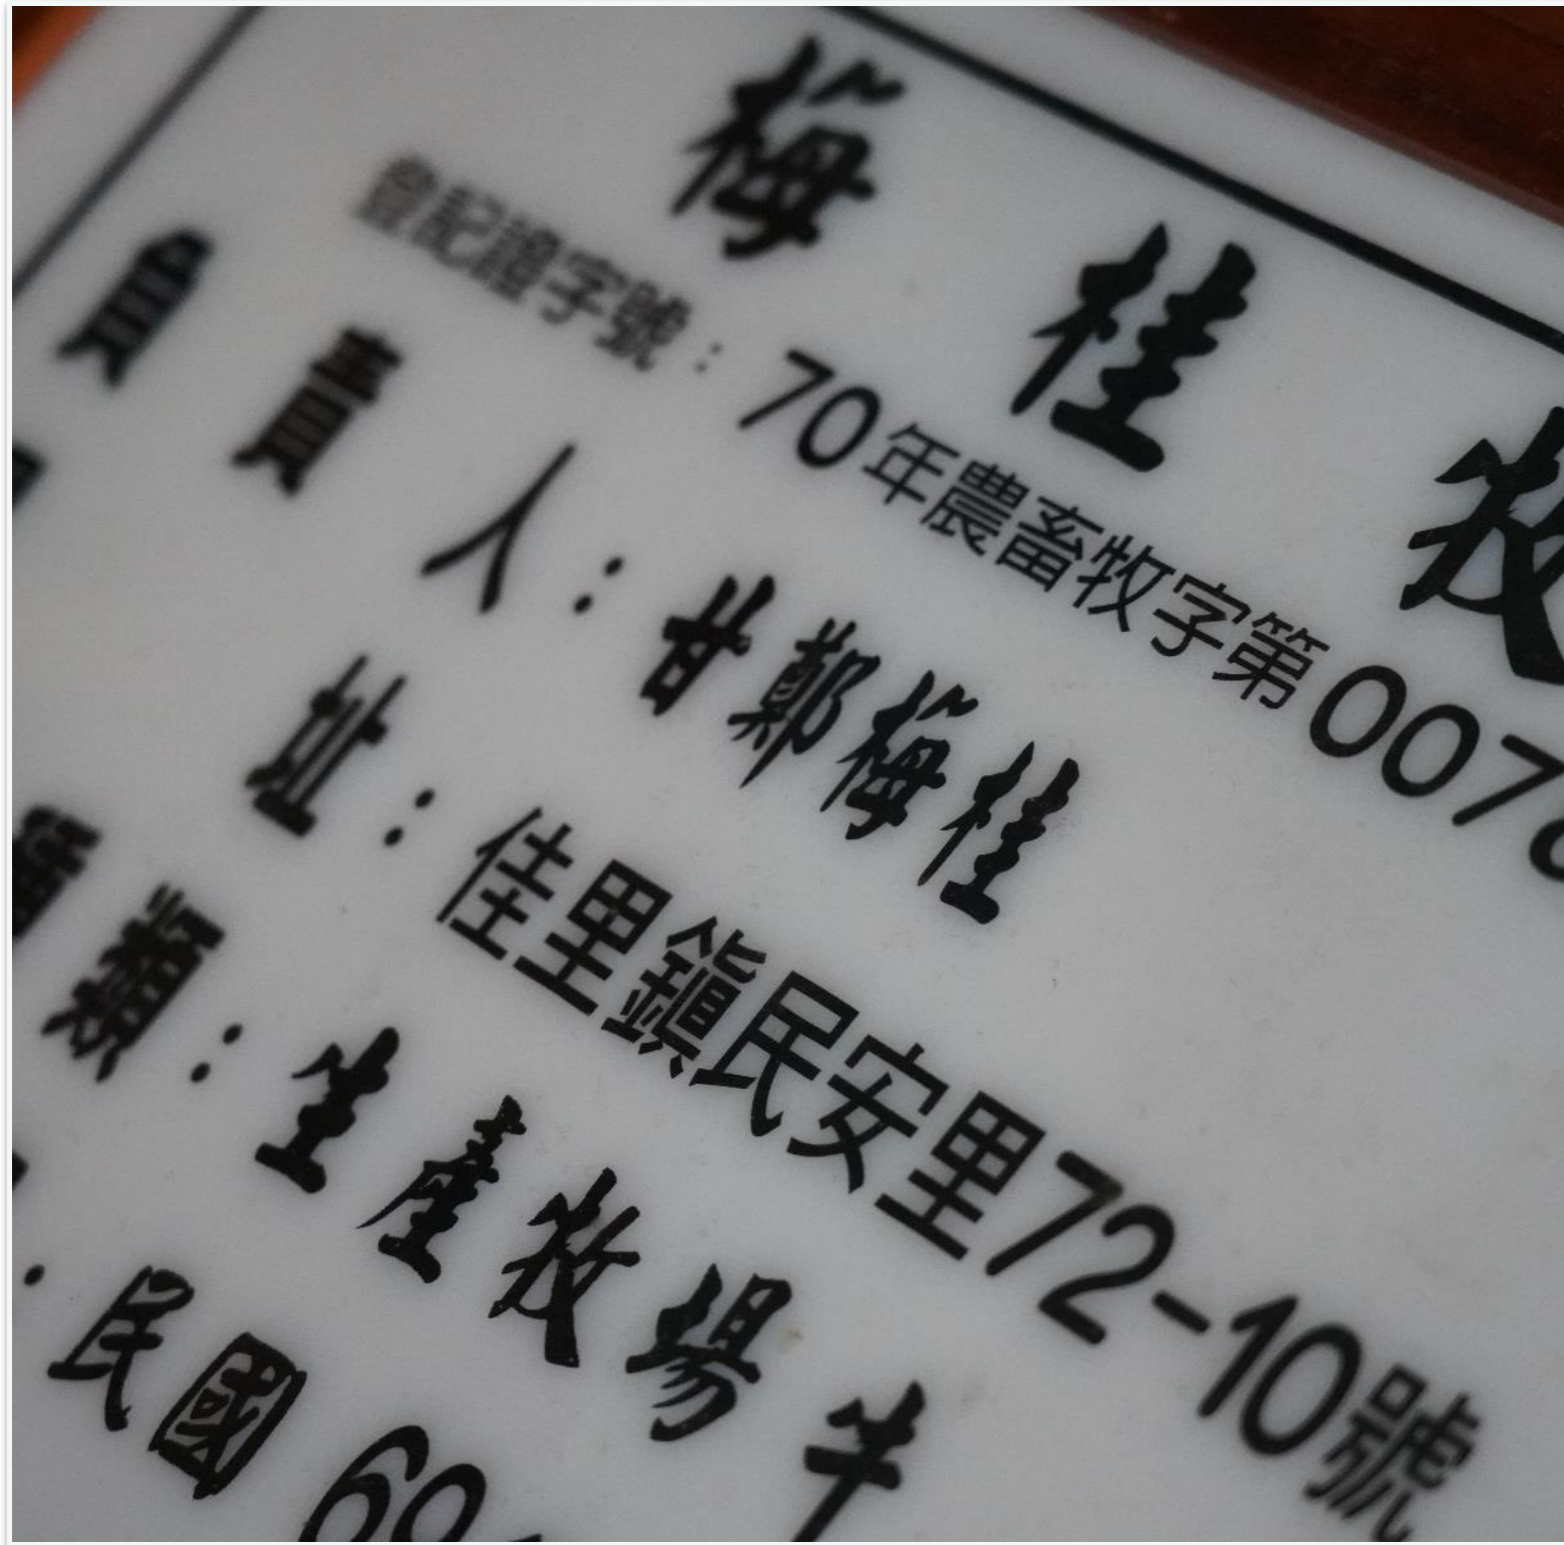 梅桂牧
登記證字號：70年農畜牧字第007
負責人：甘鄭梅桂
址：佳里鎮民安里72-10號
種類：生產牧場牛
民國6